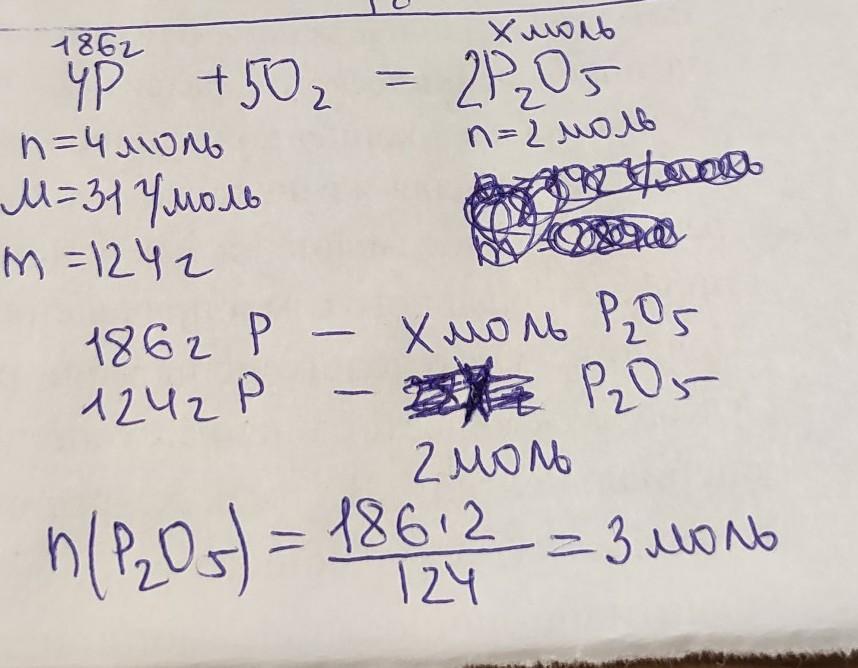 186г х моль
4P + 5O₂ = 2P₂O₅
n=4 моль n=2 моль
M=31 г/моль
m=124г
186г P – х моль P₂O₅
124г P – P₂O₅
2 моль
n(P₂O₅) = 186·2/124 = 3 моль